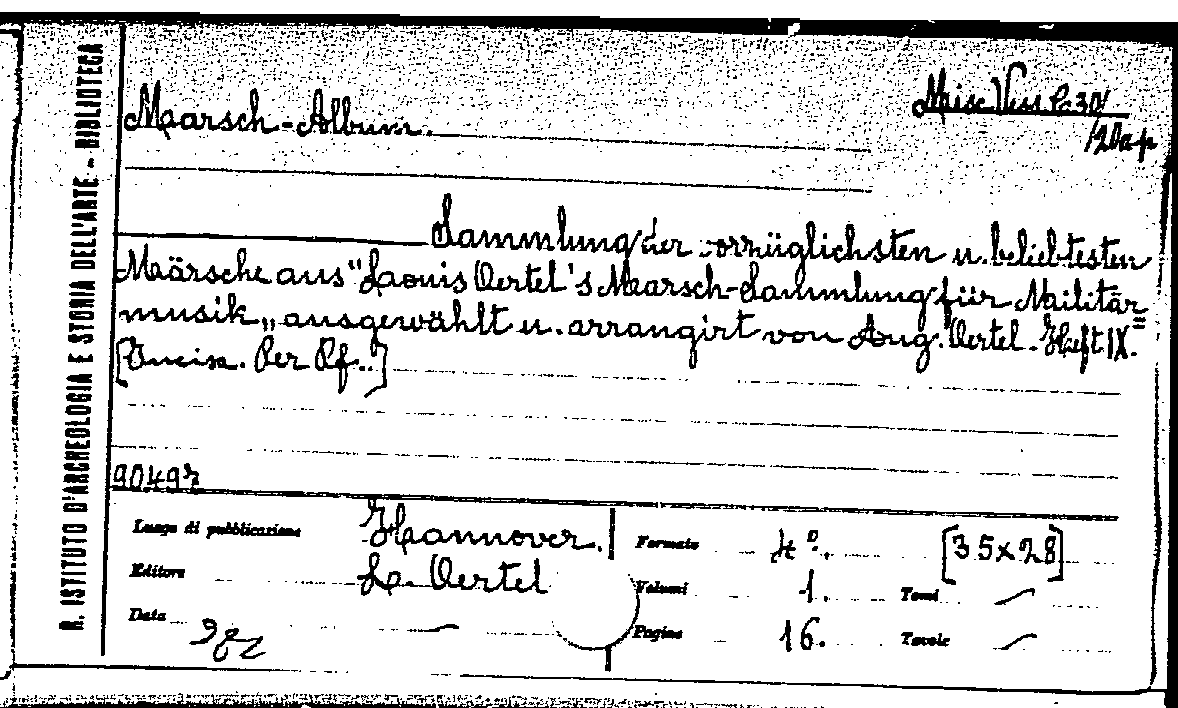 R. ISTITUTO D'ARCHEOLOGIA E STORIA DELL'ARTE - BIBLIOTECA
Maarsch-Album.
Misc Vess Pc 30/
/20a p
Sammlung der vorzüglichsten u. beliebtesten
Maärsche aus "Laouis Oertel's Maarsch-Sammlung für Militär=
musik„ ausgewählt u. arrangirt von Aug. Oertel. Heft IX.
[Incis. Per Pf..]
90492
Luogo di pubblicazione Hannover.
Editore L. Oertel
Data —
982
Formato 4°. [35x28]
Volumi 1. Tomi —
Pagine 16. Tavole —